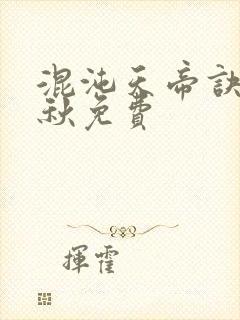 混沌天帝訣
秋免費
揮霍